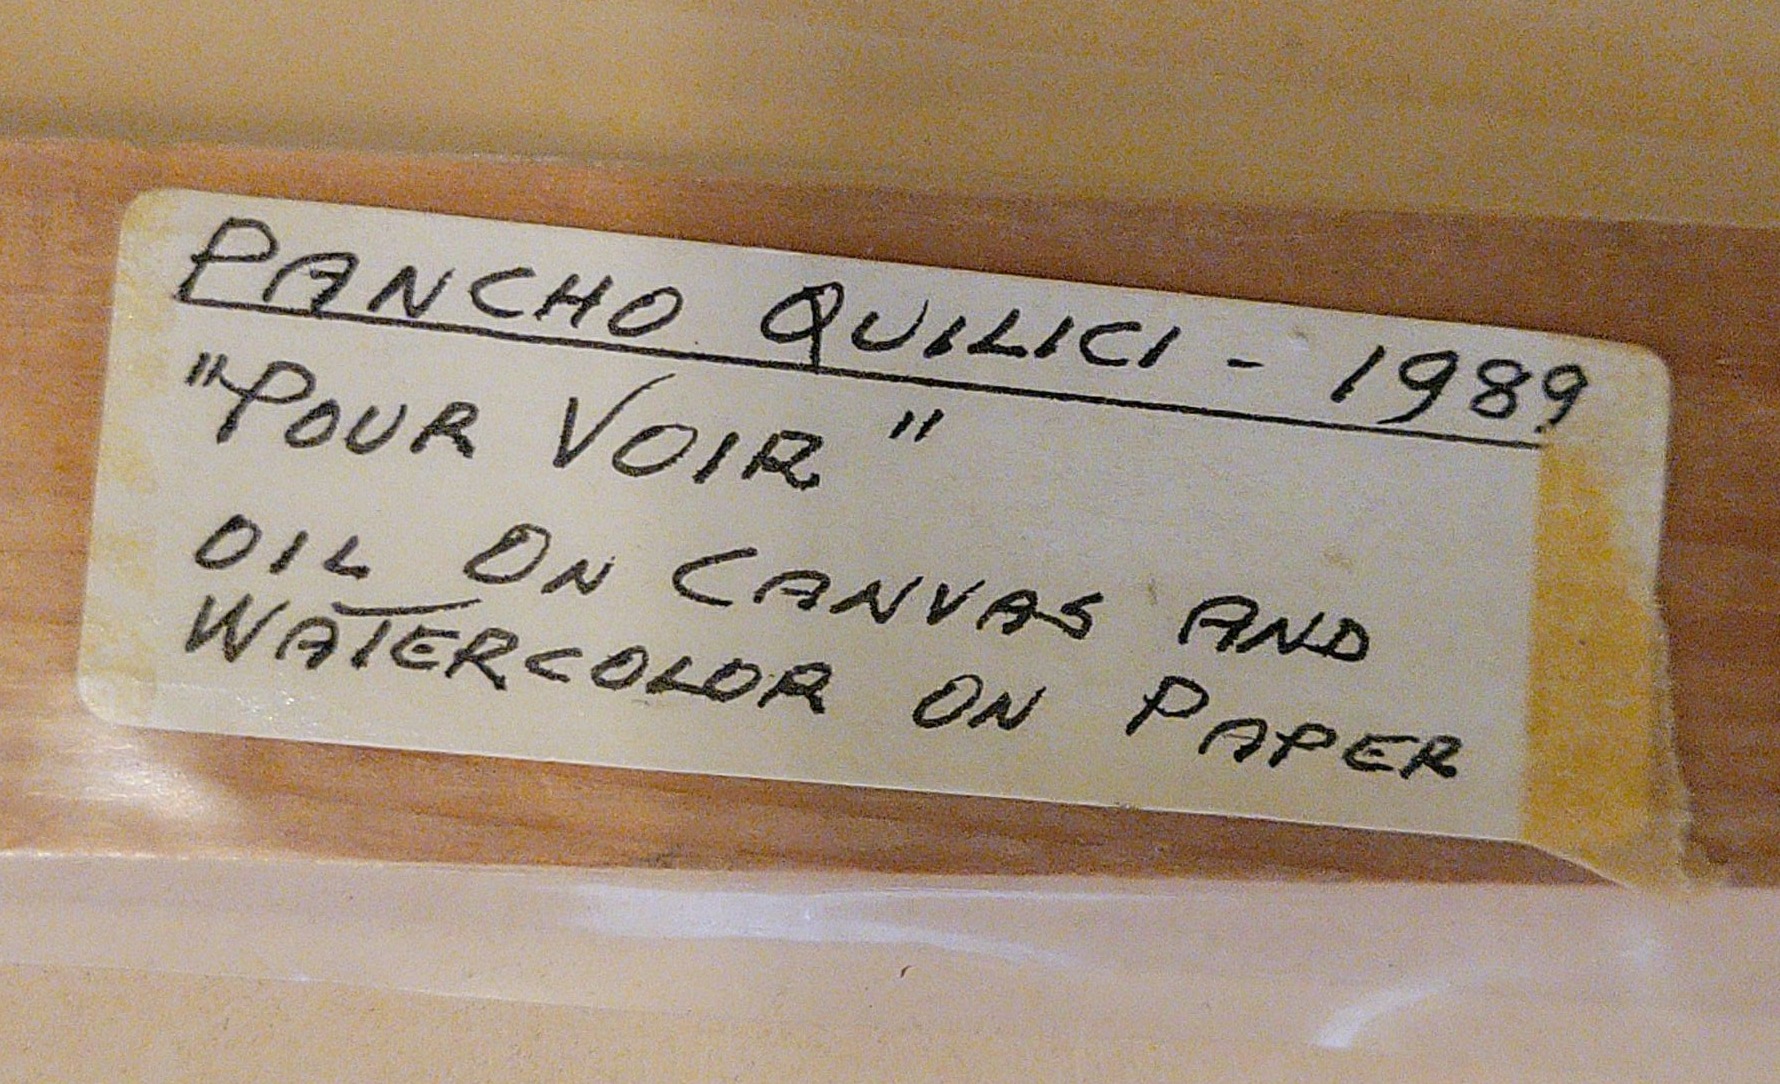 PANCHO QUILICI - 1989
"POUR VOIR"
OIL ON CANVAS AND
WATERCOLOR ON PAPER